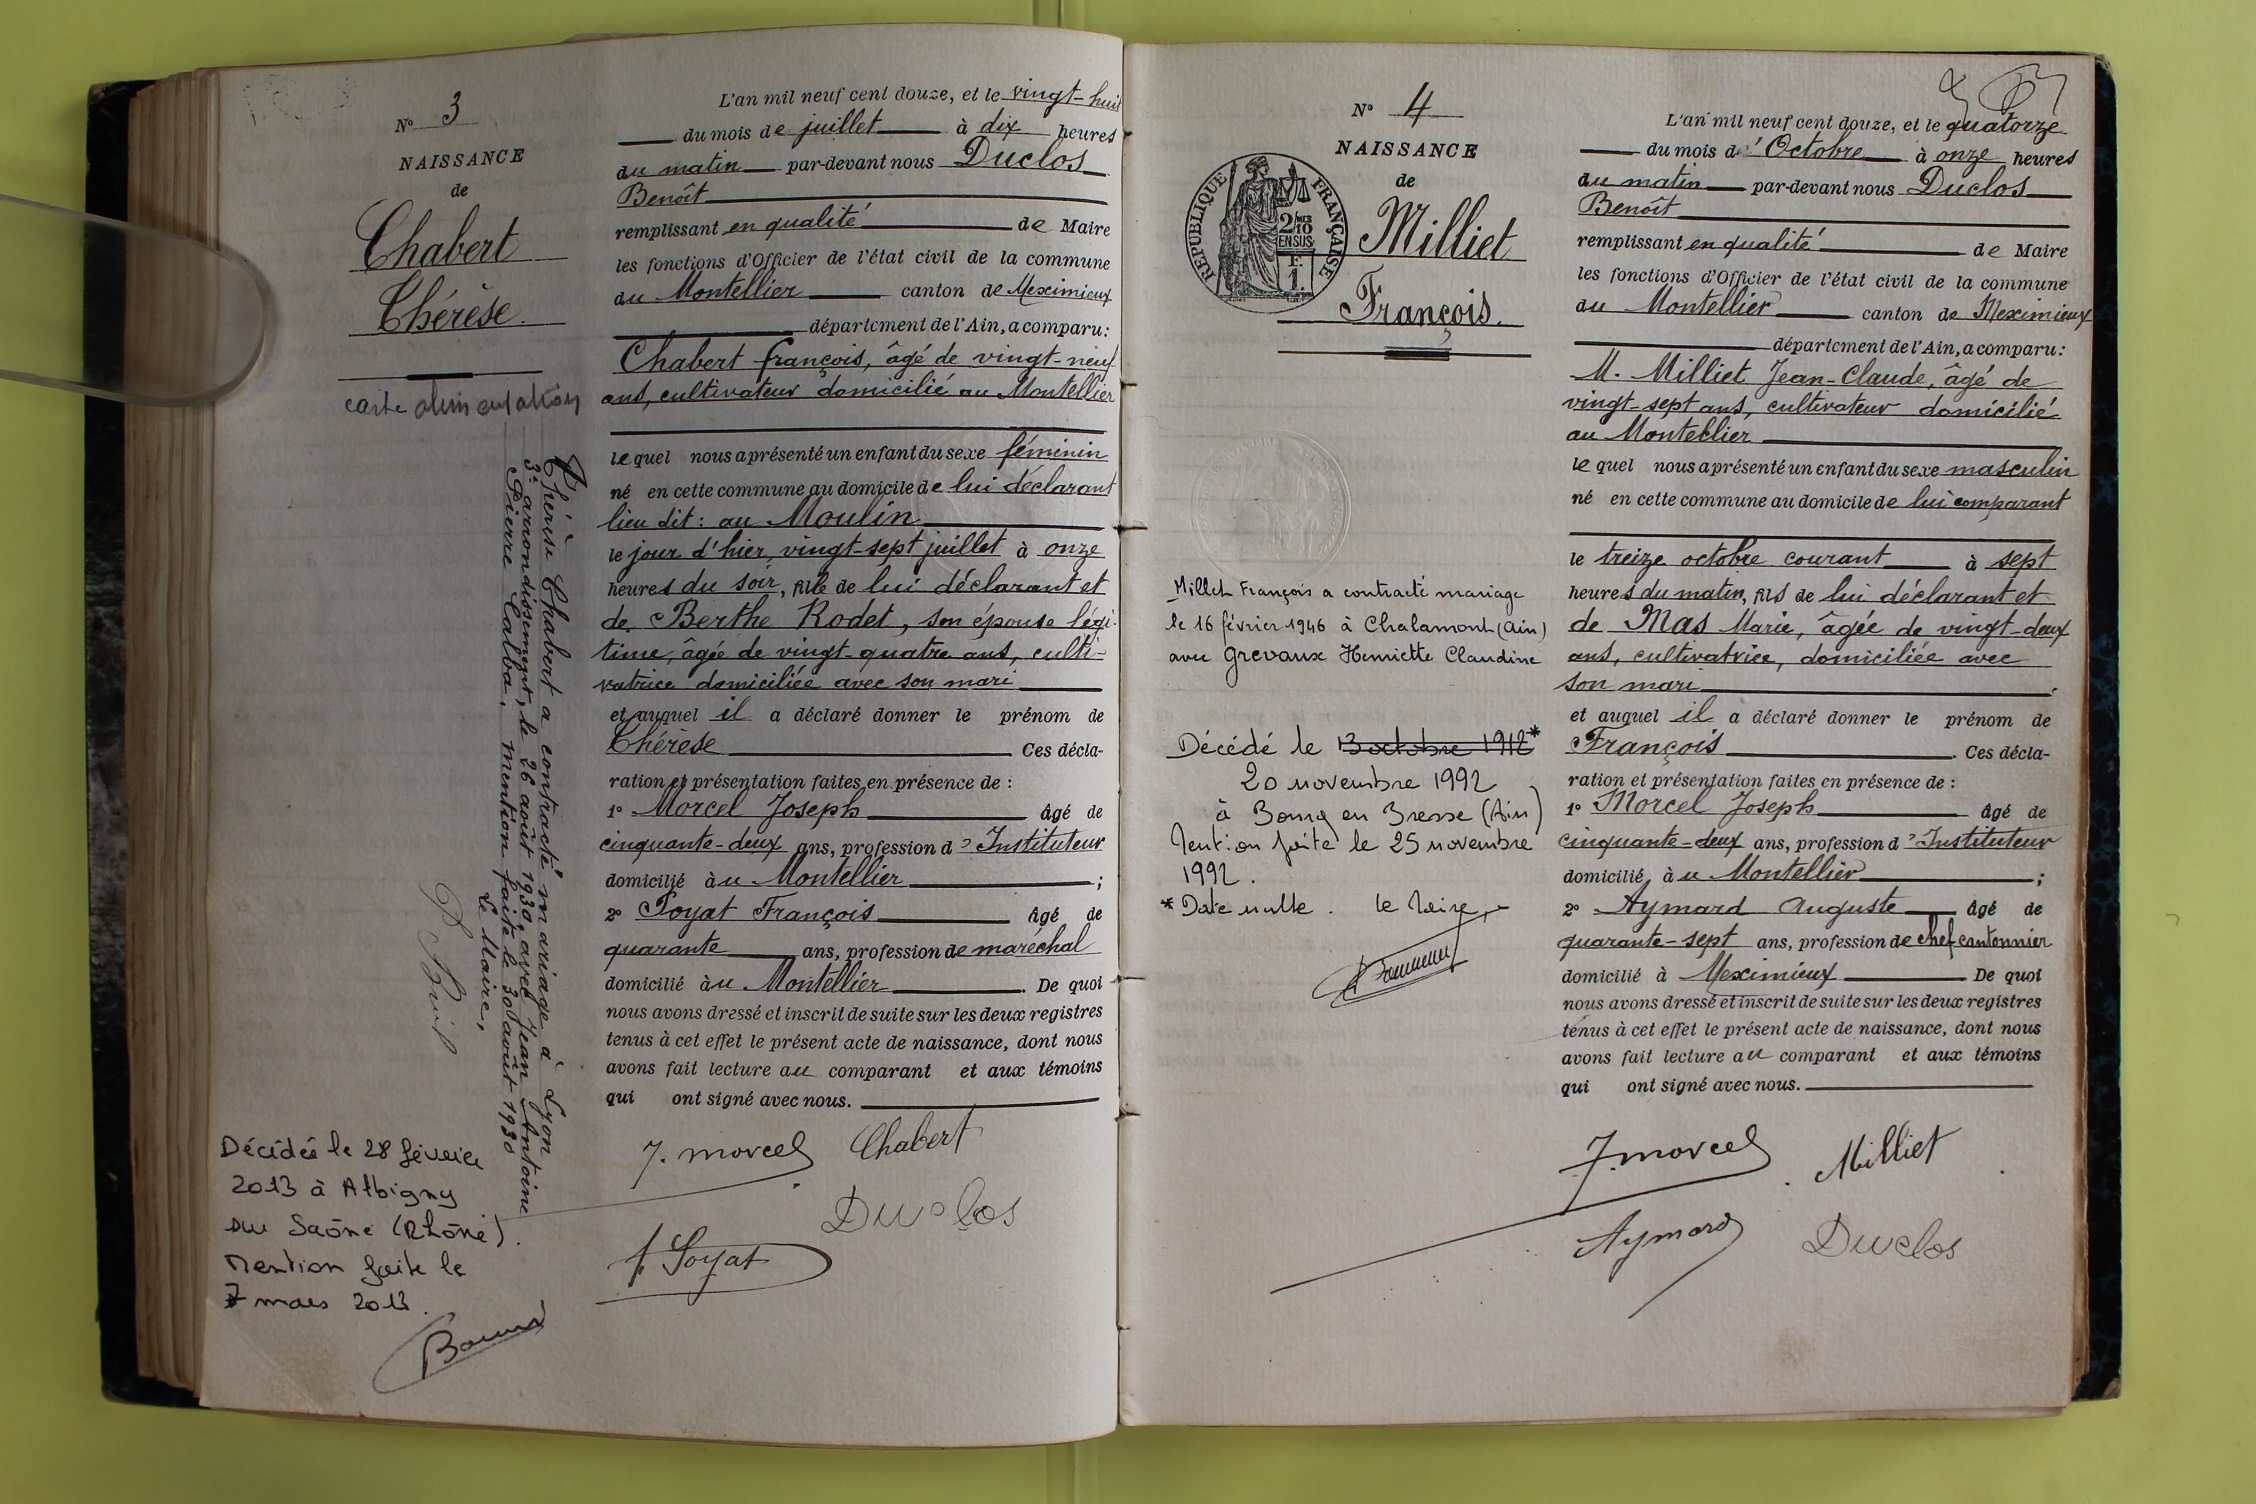 N° 3
NAISSANCE
de
Chabert
Thérèse.
carte alimentation
Thérèse Chabert a contracté mariage à Lyon
3e arrondissement, le 26 août 1930, avec Jean Antoine
Pierre Calba. Mention faite le 30 août 1930
Le Maire,
Décédée le 28 février
2013 à Albigny
sur Saône (Rhône).
Mention faite le
7 mars 2013.
L'an mil neuf cent douze, et le vingt-huit
du mois de juillet à dix heures
du matin par-devant nous Duclos
Benoît
remplissant en qualité de Maire
les fonctions d'Officier de l'état civil de la commune
du Montellier canton de Meximieux
département de l'Ain, a comparu:
Chabert françois, âgé de vingt-neuf
ans, cultivateur domicilié au Montellier
lequel nous a présenté un enfant du sexe féminin
né en cette commune au domicile de lui déclarant
lieu dit: au Moulin
le jour d'hier, vingt-sept juillet à onze
heures du soir, fille de lui déclarant et
de Berthe Rodet, son épouse légi-
time, âgée de vingt-quatre ans, culti-
vatrice domiciliée avec son mari
et auquel il a déclaré donner le prénom de
Thérèse Ces décla-
ration et présentation faites en présence de:
1° Morcel Joseph âgé de
cinquante-deux ans, profession d'Instituteur
domicilié au Montellier;
2° Soyat François âgé de
quarante ans, profession de maréchal
domicilié au Montellier. De quoi
nous avons dressé et inscrit de suite sur les deux registres
tenus à cet effet le présent acte de naissance, dont nous
avons fait lecture au comparant et aux témoins
qui ont signé avec nous.
J. morcel Chabert
Duclos
f. Soyat
N° 4
NAISSANCE
de
RÉPUBLIQUE FRANÇAISE
2/10
EN SUS
F.
1.
Milliet
François.
Millet François a contracté mariage
le 16 février 1946 à Chalamont (Ain)
avec Grevaux Henriette Claudine
Décédé le 13 octobre 1912*
20 novembre 1992
à Bourg en Bresse (Ain)
Mention faite le 25 novembre
1992.
* Date nulle. Le Maire,
L'an mil neuf cent douze, et le quatorze
du mois d'Octobre à onze heures
du matin par-devant nous Duclos
Benoît
remplissant en qualité de Maire
les fonctions d'Officier de l'état civil de la commune
du Montellier canton de Meximieux
département de l'Ain, a comparu:
M. Milliet Jean-Claude, âgé de
vingt-sept ans, cultivateur domicilié
au Montellier
lequel nous a présenté un enfant du sexe masculin
né en cette commune au domicile de lui comparant
le treize octobre courant à sept
heures du matin, fils de lui déclarant et
de Mas Marie, âgée de vingt-deux
ans, cultivatrice, domiciliée avec
son mari.
et auquel il a déclaré donner le prénom de
François. Ces décla-
ration et présentation faites en présence de:
1° Morcel Joseph âgé de
cinquante-deux ans, profession d'Instituteur
domicilié au Montellier;
2° Aymard Auguste âgé de
quarante-sept ans, profession de chef cantonnier
domicilié à Meximieux De quoi
nous avons dressé et inscrit de suite sur les deux registres
tenus à cet effet le présent acte de naissance, dont nous
avons fait lecture au comparant et aux témoins
qui ont signé avec nous.
J. morcel Milliet
Aymard Duclos